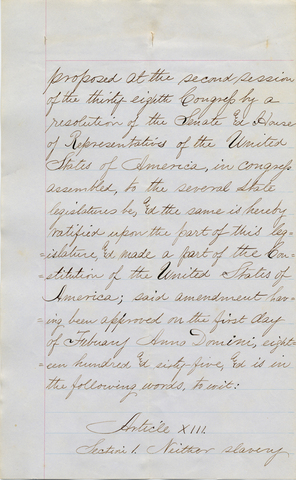 proposed at the second session
of the thirty eighth Congress by a
resolution of the Senate & House
of Representativs of the United
States of America, in congress
assembled, to the several state
legislatures be, & the same is hereby
ratified upon the part of this leg=
=islature, & made a part of the Con=
=stitution of the United States of
America; said amendment hav=
=ing been approved on the first day
of Febuary Anno Domini, eight=
=een hundred & sixty five, & is in
the following words, to wit:
Article XIII.
Section 1. Neither slavery